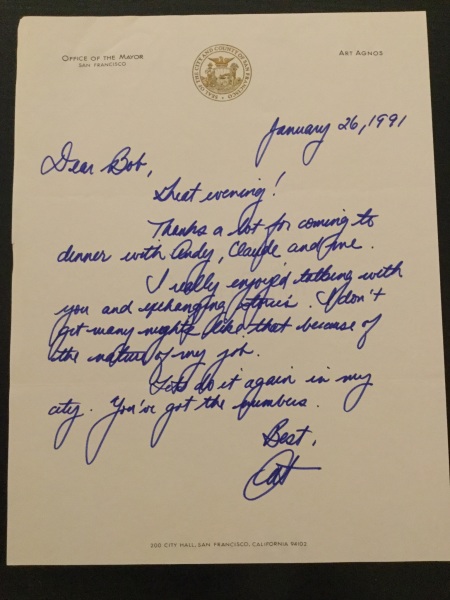 OFFICE OF THE MAYOR
SAN FRANCISCO
SEAL OF THE CITY AND COUNTY OF SAN FRANCISCO
ART AGNOS
January 26, 1991
Dear Bob,
Great evening!
Thanks a lot for coming to
dinner with Andy, Claude and me.
I really enjoyed talking with
you and exchanging stories. I don't
get many nights like that because of
the nature of my job.
Let's do it again in my
city. You've got the numbers.
Best,
Art
200 CITY HALL, SAN FRANCISCO, CALIFORNIA 94102